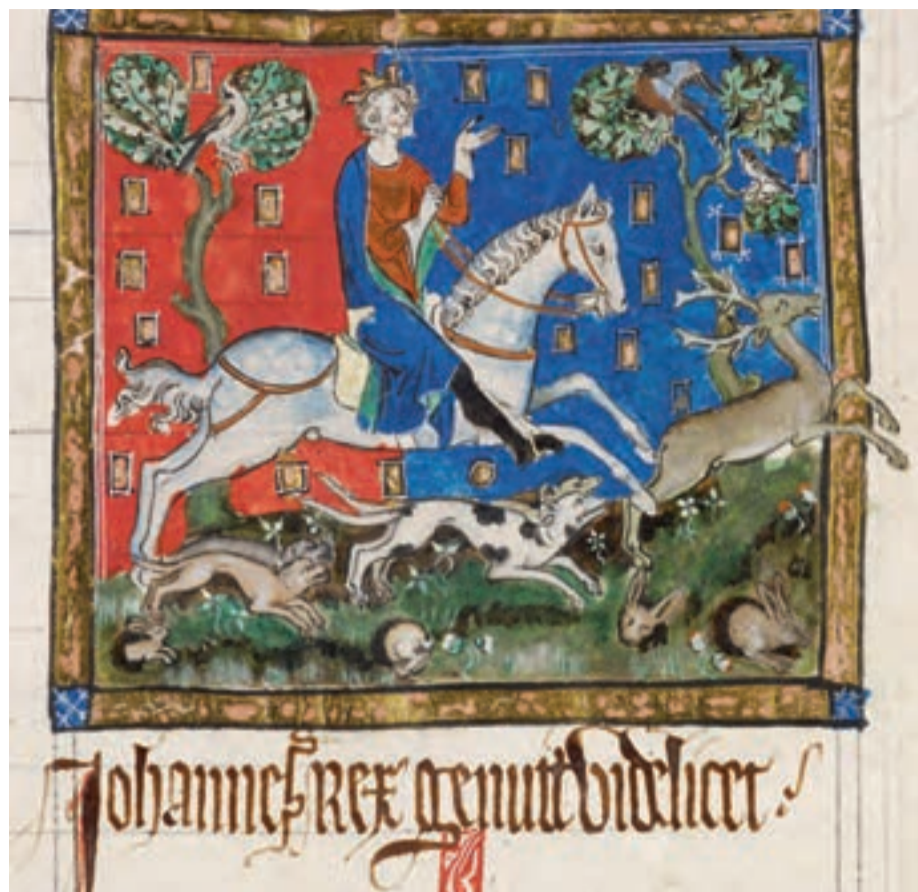 Johannes Rex genuit videlicet
R